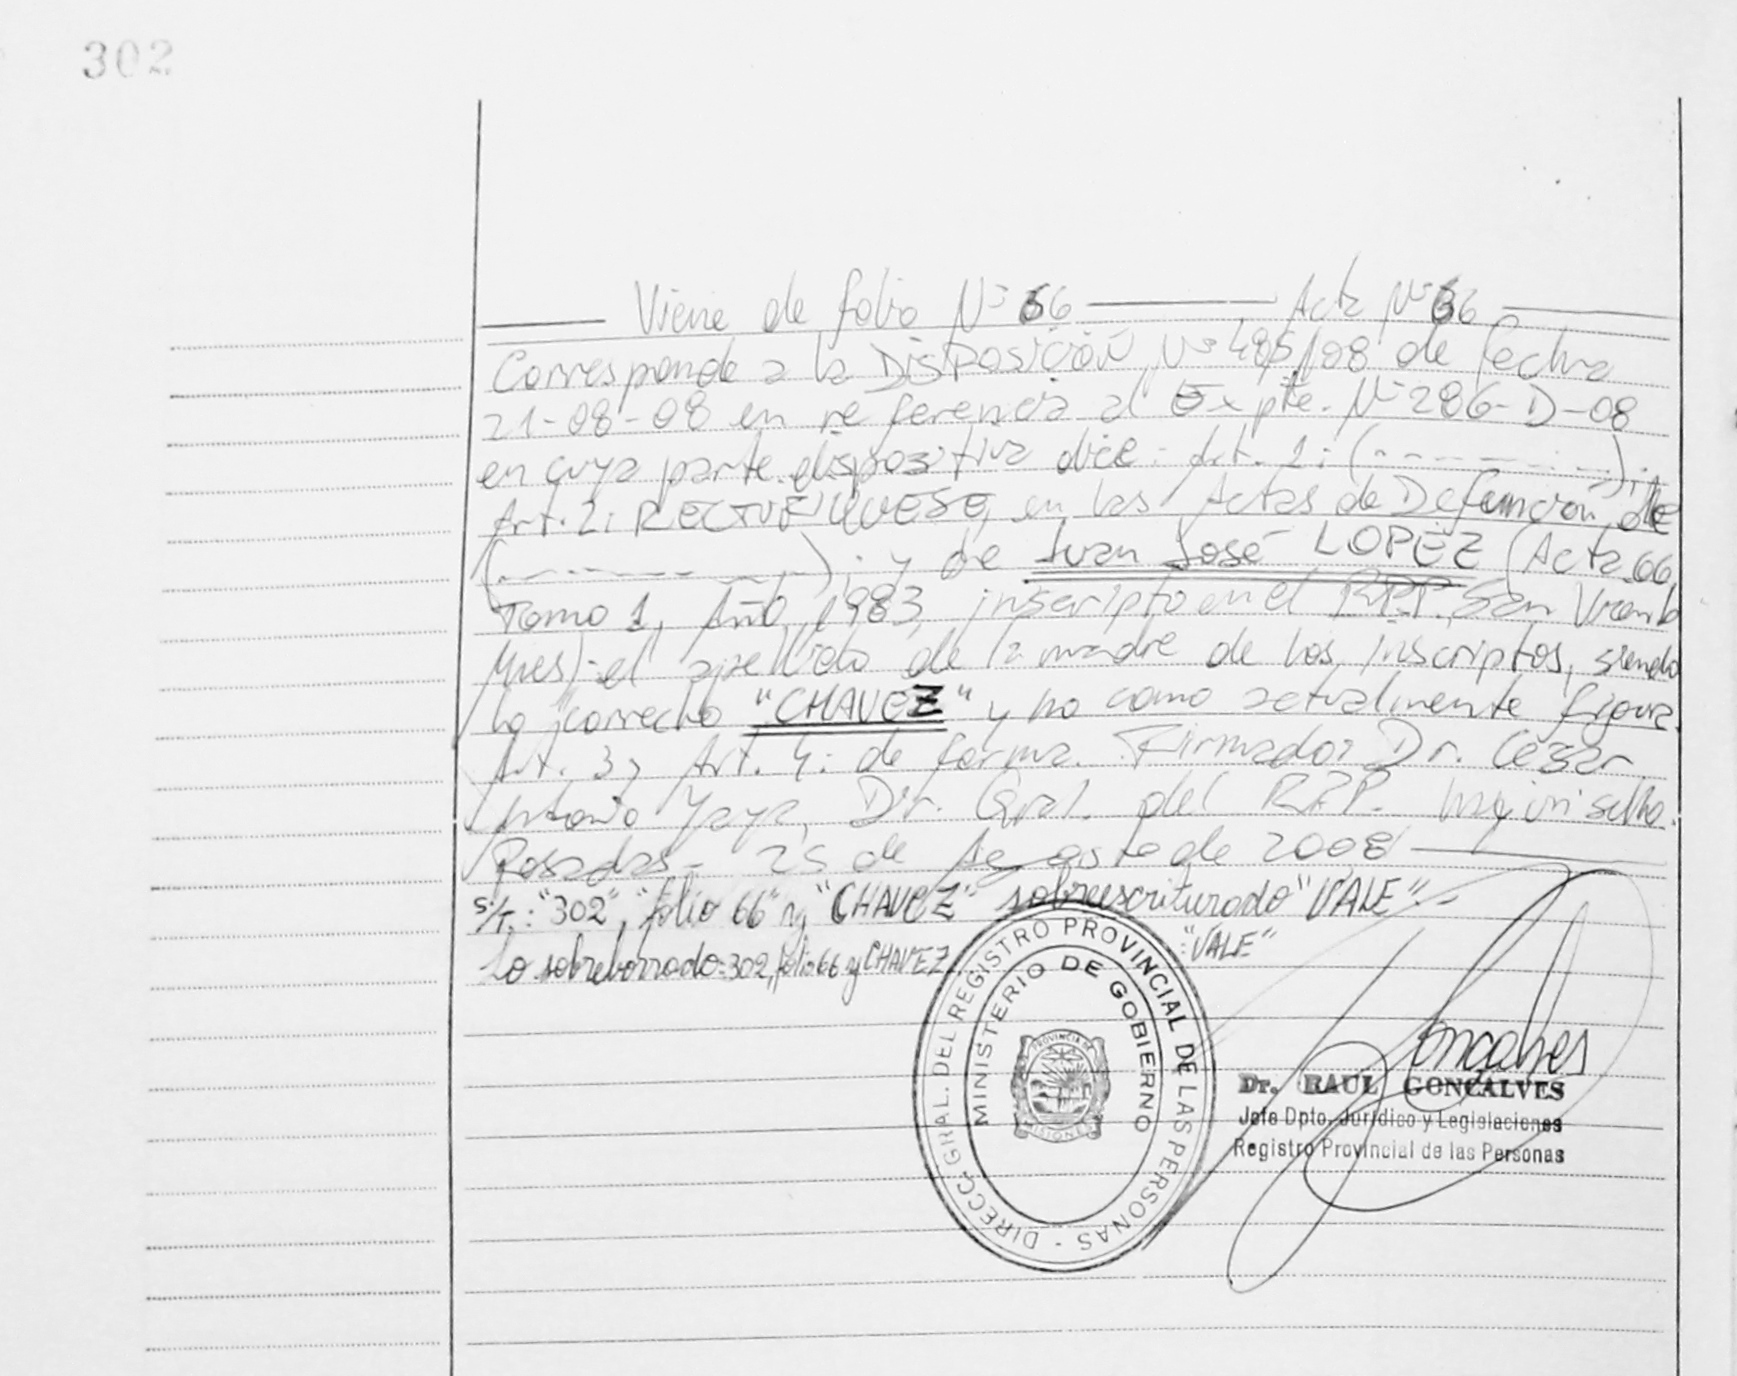 302
Viene de folio Nº 66 Acta Nº 66
Corresponde a la Disposición Nº 485/08 de fecha
21-08-08 en referencia al Expte. Nº 286-D-08
en cuya parte dispositiva dice: Art. 1: (- - - - - - -).
Art. 2: RECTIFIQUESE, en las Actas de Defunción de
(- - - - - - - -). y de Juan José LOPEZ (Acta 66,
Tomo 1, Año 1983, inscripto en el R.P.P. San Vicente
Mnes) el apellido de la madre de los inscriptos, siendo
lo correcto "CHAVEZ" y no como actualmente figura.
Art. 3 y Art. 4: de forma. Firmado: Dr. César
Antonio Yaya, Dir. Gral. del R.P.P. Hay un sello.
Posadas- 25 de Agosto de 2008
S/T.: "302", "folio 66" y "CHAVEZ" sobreescriturado "VALE".-
Lo sobreborrado: 302, folio 66 y CHAVEZ. "VALE"
DIRECC. GRAL. DEL REGISTRO PROVINCIAL DE LAS PERSONAS -
MINISTERIO DE GOBIERNO
PROVINCIA DE
MISIONES
Goncalves
Dr. RAUL GONCALVES
Jefe Dpto. Jurídico y Legislaciones
Registro Provincial de las Personas